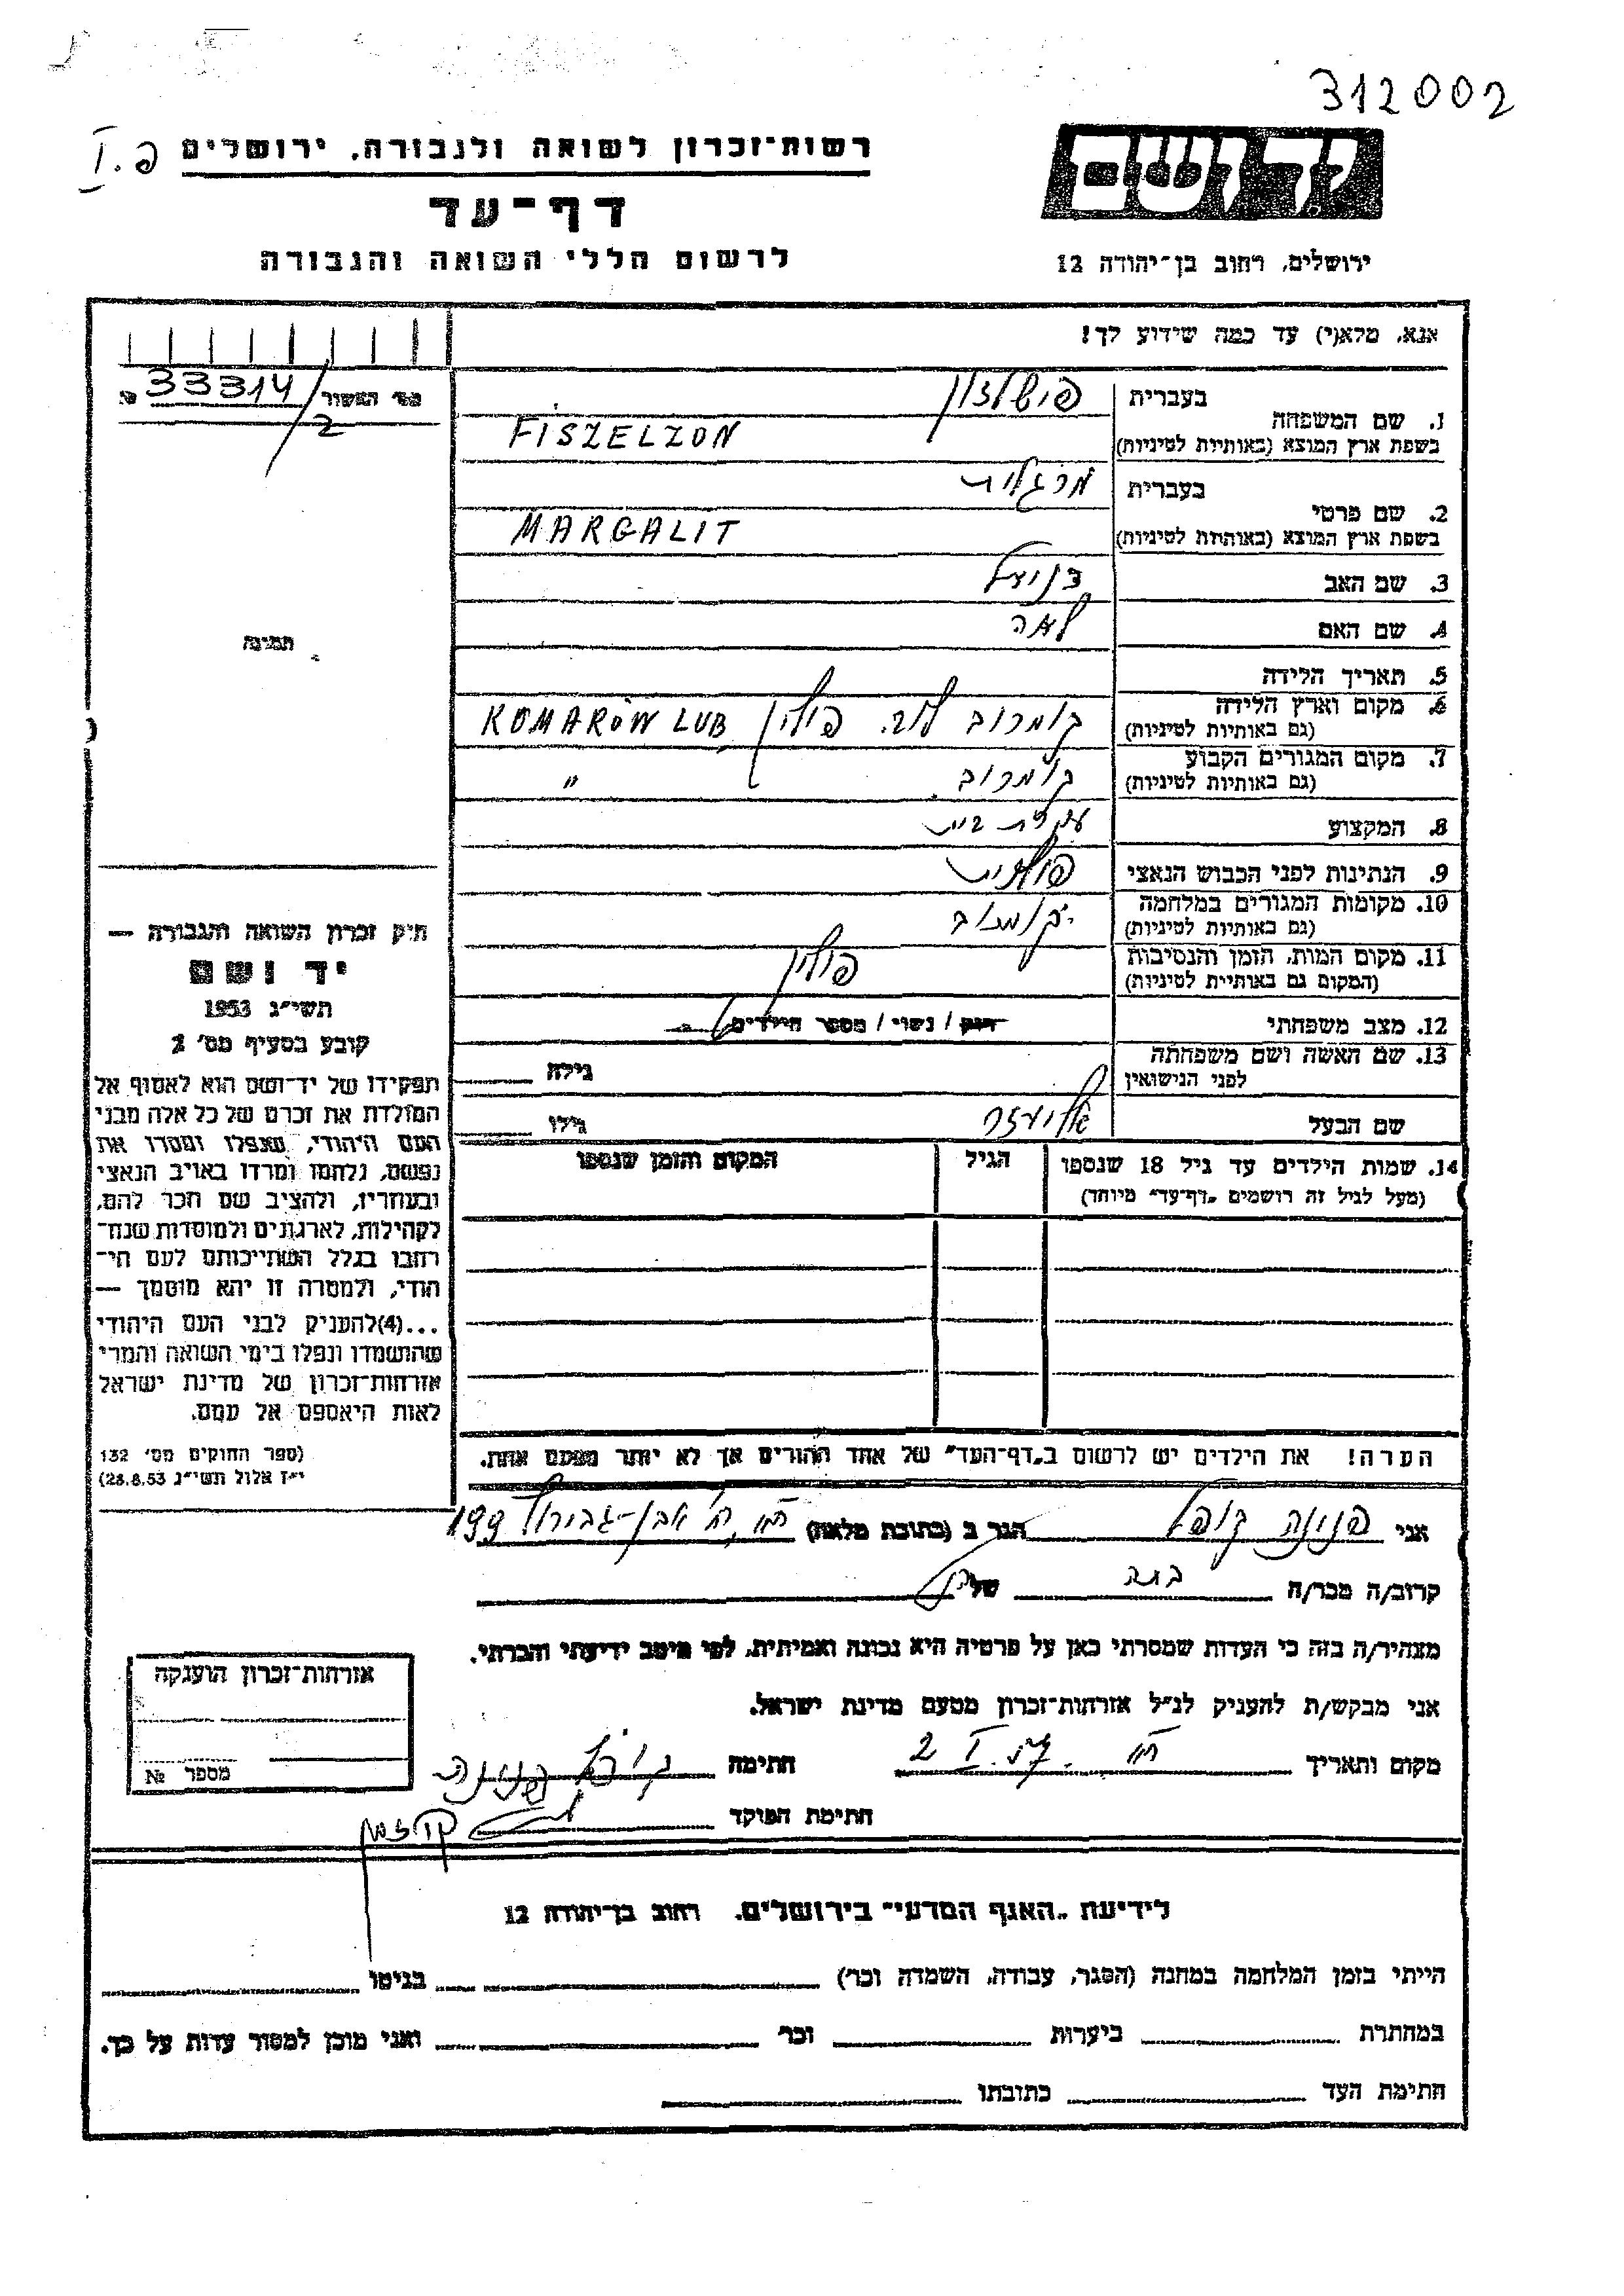 312002
רשות־זכרון לשואה ולגבורה, ירושלים
פ. I
דף־עד
לרשום חללי השואה והגבורה
יד ושם
ירושלים, רחוב בן־יהודה 12
אנא, מלא(י) עד כמה שידוע לך!
מס' האשור 33314/2 №
1. שם המשפחה
בעברית פישלזון
בשפת ארץ המוצא (באותיות לטיניות) FISZELZON
2. שם פרטי
בעברית מרגלית
בשפת ארץ המוצא (באותיות לטיניות) MARGALIT
3. שם האב
4. שם האם לאה
5. תאריך הלידה
6. מקום וארץ הלידה (גם באותיות לטיניות) קומרוב לוב. פולין KOMARÓW LUB
7. מקום המגורים הקבוע (גם באותיות לטיניות) קומרוב "
8. המקצוע עקרת בית
9. הנתינות לפני הכבוש הנאצי פולנית
10. מקומות המגורים במלחמה (גם באותיות לטיניות) קומרוב
11. מקום המות, הזמן והנסיבות (המקום גם באותיות לטיניות) פולין
12. מצב משפחתי רווק / נשוי / מספר הילדים
13. שם האשה ושם משפחתה לפני הנישואין
גילה
שם הבעל אליעזר
גילו
14. שמות הילדים עד גיל 18 שנספו
(מעל לגיל זה רושמים „דף־עד" מיוחד)
הגיל
המקום והזמן שנספו
הערה! את הילדים יש לרשום ב„דף־העד" של אחד ההורים אך לא יותר מפעם אחת.
תמונה
חוק זכרון השואה והגבורה —
יד ושם
תשי"ג 1953
קובע בסעיף מס' 2
תפקידו של יד־ושם הוא לאסוף אל
המולדת את זכרם של כל אלה מבני
העם היהודי, שנפלו ומסרו את
נפשם, נלחמו ומרדו באויב הנאצי
ובעוזריו, ולהציב שם וזכר להם,
לקהילות, לארגונים ולמוסדות שנח־
רבו בגלל השתייכותם לעם הי־
הודי, ולמטרה זו יהא מוסמך —
...(4)להעניק לבני העם היהודי
שהושמדו ונפלו בימי השואה והמרי
אזרחות־זכרון של מדינת ישראל
לאות היאספם אל עמם.
(ספר החוקים מס' 132
י"ז אלול תשי"ג 28.8.53)
אני פנינה קופל הגר ב (כתובת מלאה) אבן-גבירול 199
קרוב/ה מכר/ה בתה של
מצהיר/ה בזה כי העדות שמסרתי כאן על פרטיה היא נכונה ואמיתית, לפי מיטב ידיעתי והכרתי.
אני מבקש/ת להעניק לנ"ל אזרחות־זכרון מטעם מדינת ישראל.
מקום ותאריך 2 I. 57 חתימה קופל פנינה
חתימת הפוקד
אזרחות־זכרון הוענקה
מספר №
לידיעת „האגף המדעי" בירושלים, רחוב בן־יהודה 12
הייתי בזמן המלחמה במחנה (הסגר, עבודה, השמדה וכו') בגיטו
במחתרת ביערות וכו' ואני מוכן למסור עדות על כך.
חתימת העד כתובתו